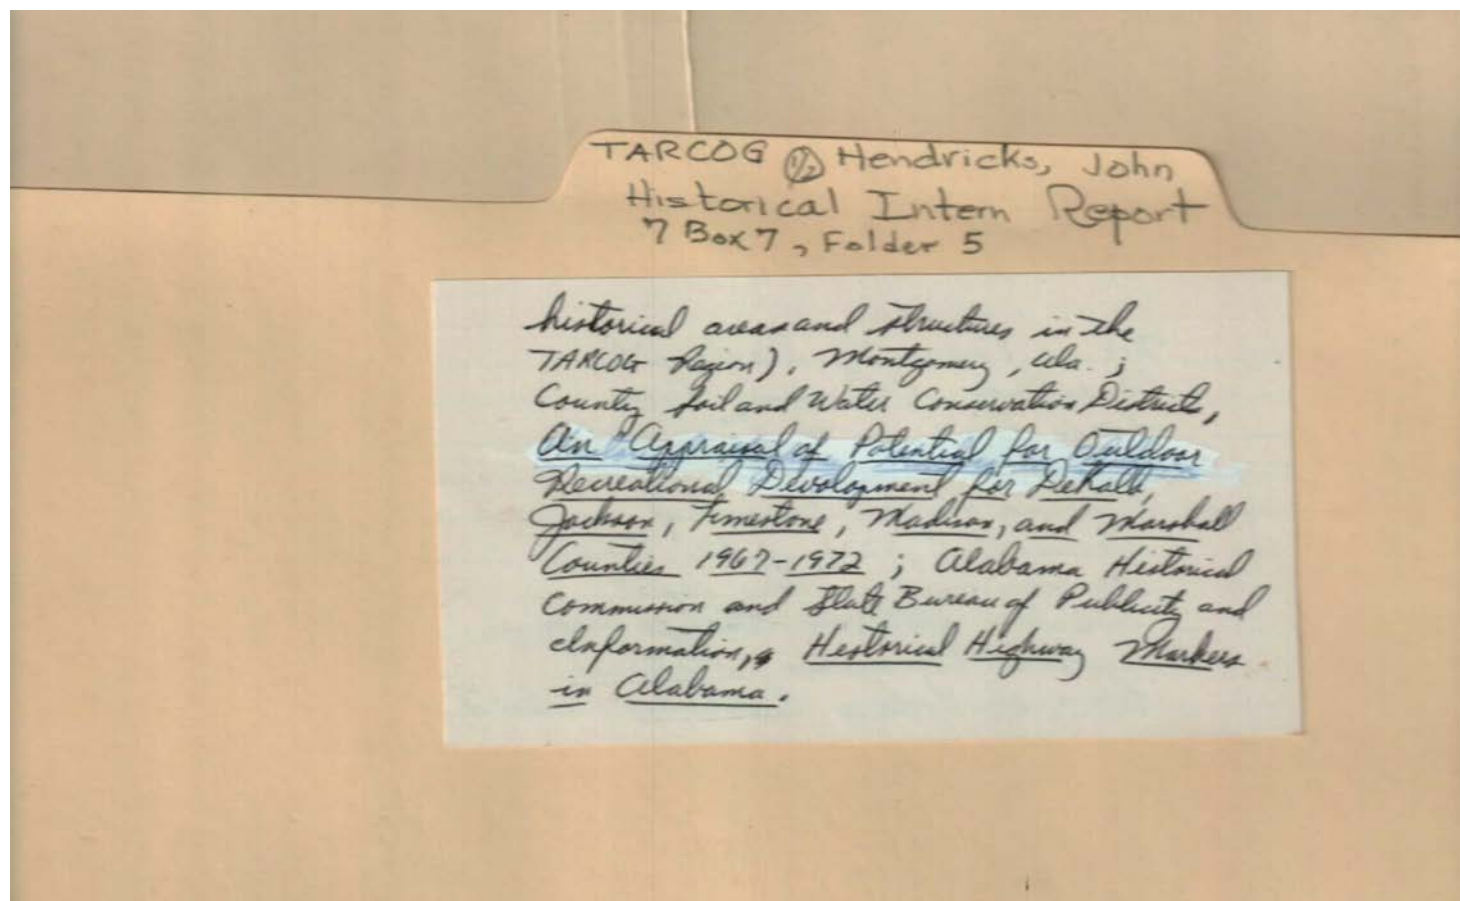 TARCOG 1/2 Hendricks, John
Historical Intern Report
7 Box 7, Folder 5
historical areas and structures in the
TARCOG Region), Montgomery, Ala. ;
County Soil and Water Conservation Districts,
An Appraisal of Potential for Outdoor
Recreational Development for DeKalb,
Jackson, Limestone, Madison, and Marshall
Counties 1967-1972 ; Alabama Historical
Commission and State Bureau of Publicity and
Information, Historical Highway Markers
in Alabama.